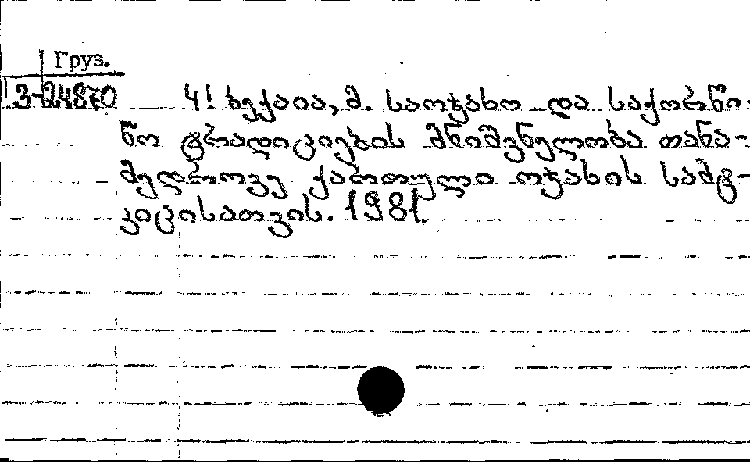 Груз.
3-24870 4! ბექაია, მ. საოჯახო და საქორწი-
ნო ტრადიციების მნიშვნელობა თანა-
მედროვე ქართული ოჯახის სიმტ-
კიცისათვის. 1981.